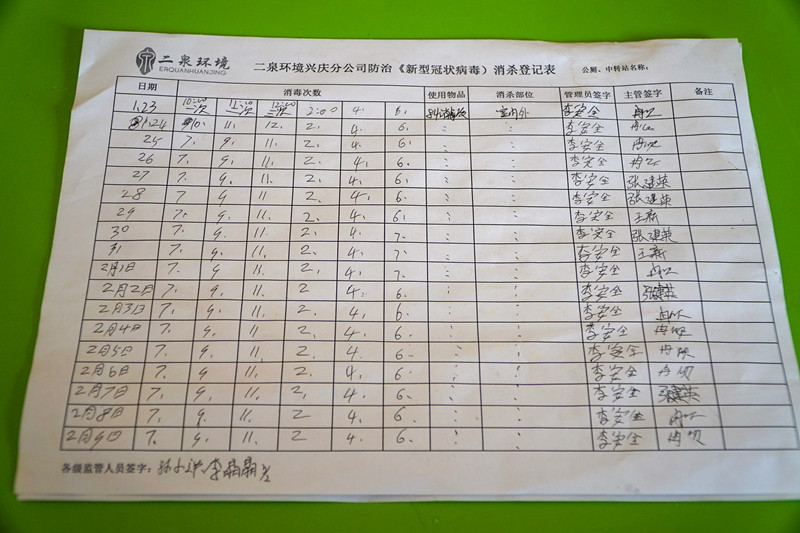 二泉环境
ERQUANHUANJING
二泉环境兴庆分公司防治《新型冠状病毒》消杀登记表
公厕、中转站名称:
日期 消毒次数 使用物品 消杀部位 管理员签字 主管签字 备注
1.23 10:00一次 11:00一次 12:00一次 2:00 4. 6. 室内外 李安全
1.24 10. 11. 12. 2. 4. 6. 〃 〃 李安全
25 7. 9. 11. 2. 4. 6. 〃 〃 李安全
26 7. 9. 11. 2. 4. 6. 〃 〃 李安全
27 7. 9. 11. 2. 4. 6. 〃 〃 李安全 张建英
28 7 9 11. 2. 4. 6. 〃 〃 李安全 张建英
29 7. 9 11. 2. 4. 6. 〃 〃 李安全 王新
30 7. 9. 11. 2. 4. 7. 〃 〃 李安全 张建英
31 7. 9. 11. 2. 4. 7. 〃 〃 李安全 王新
2月1日 7. 9. 11. 2. 4. 7. 〃 〃 李安全
2月2日 7. 9. 11. 2 4. 6. 〃 〃 李安全 张建英
2月3日 7. 9. 11. 2. 4. 6. 〃 〃 李安全
2月4日 7. 9. 11. 2. 4. 6. 〃 〃 李安全
2月5日 7. 9. 11. 2. 4. 6. 〃 〃 李安全
2月6日 7. 9. 11. 2. 4. 6. 〃 〃 李安全
2月7日 7. 9. 11. 2. 4. 6. 〃 〃 李安全 张建英
2月8日 7. 9. 11. 2 4. 6. 〃 〃 李安全
2月9日 7. 9. 11. 2 4. 6. 〃 〃 李安全
各级监管人员签字: